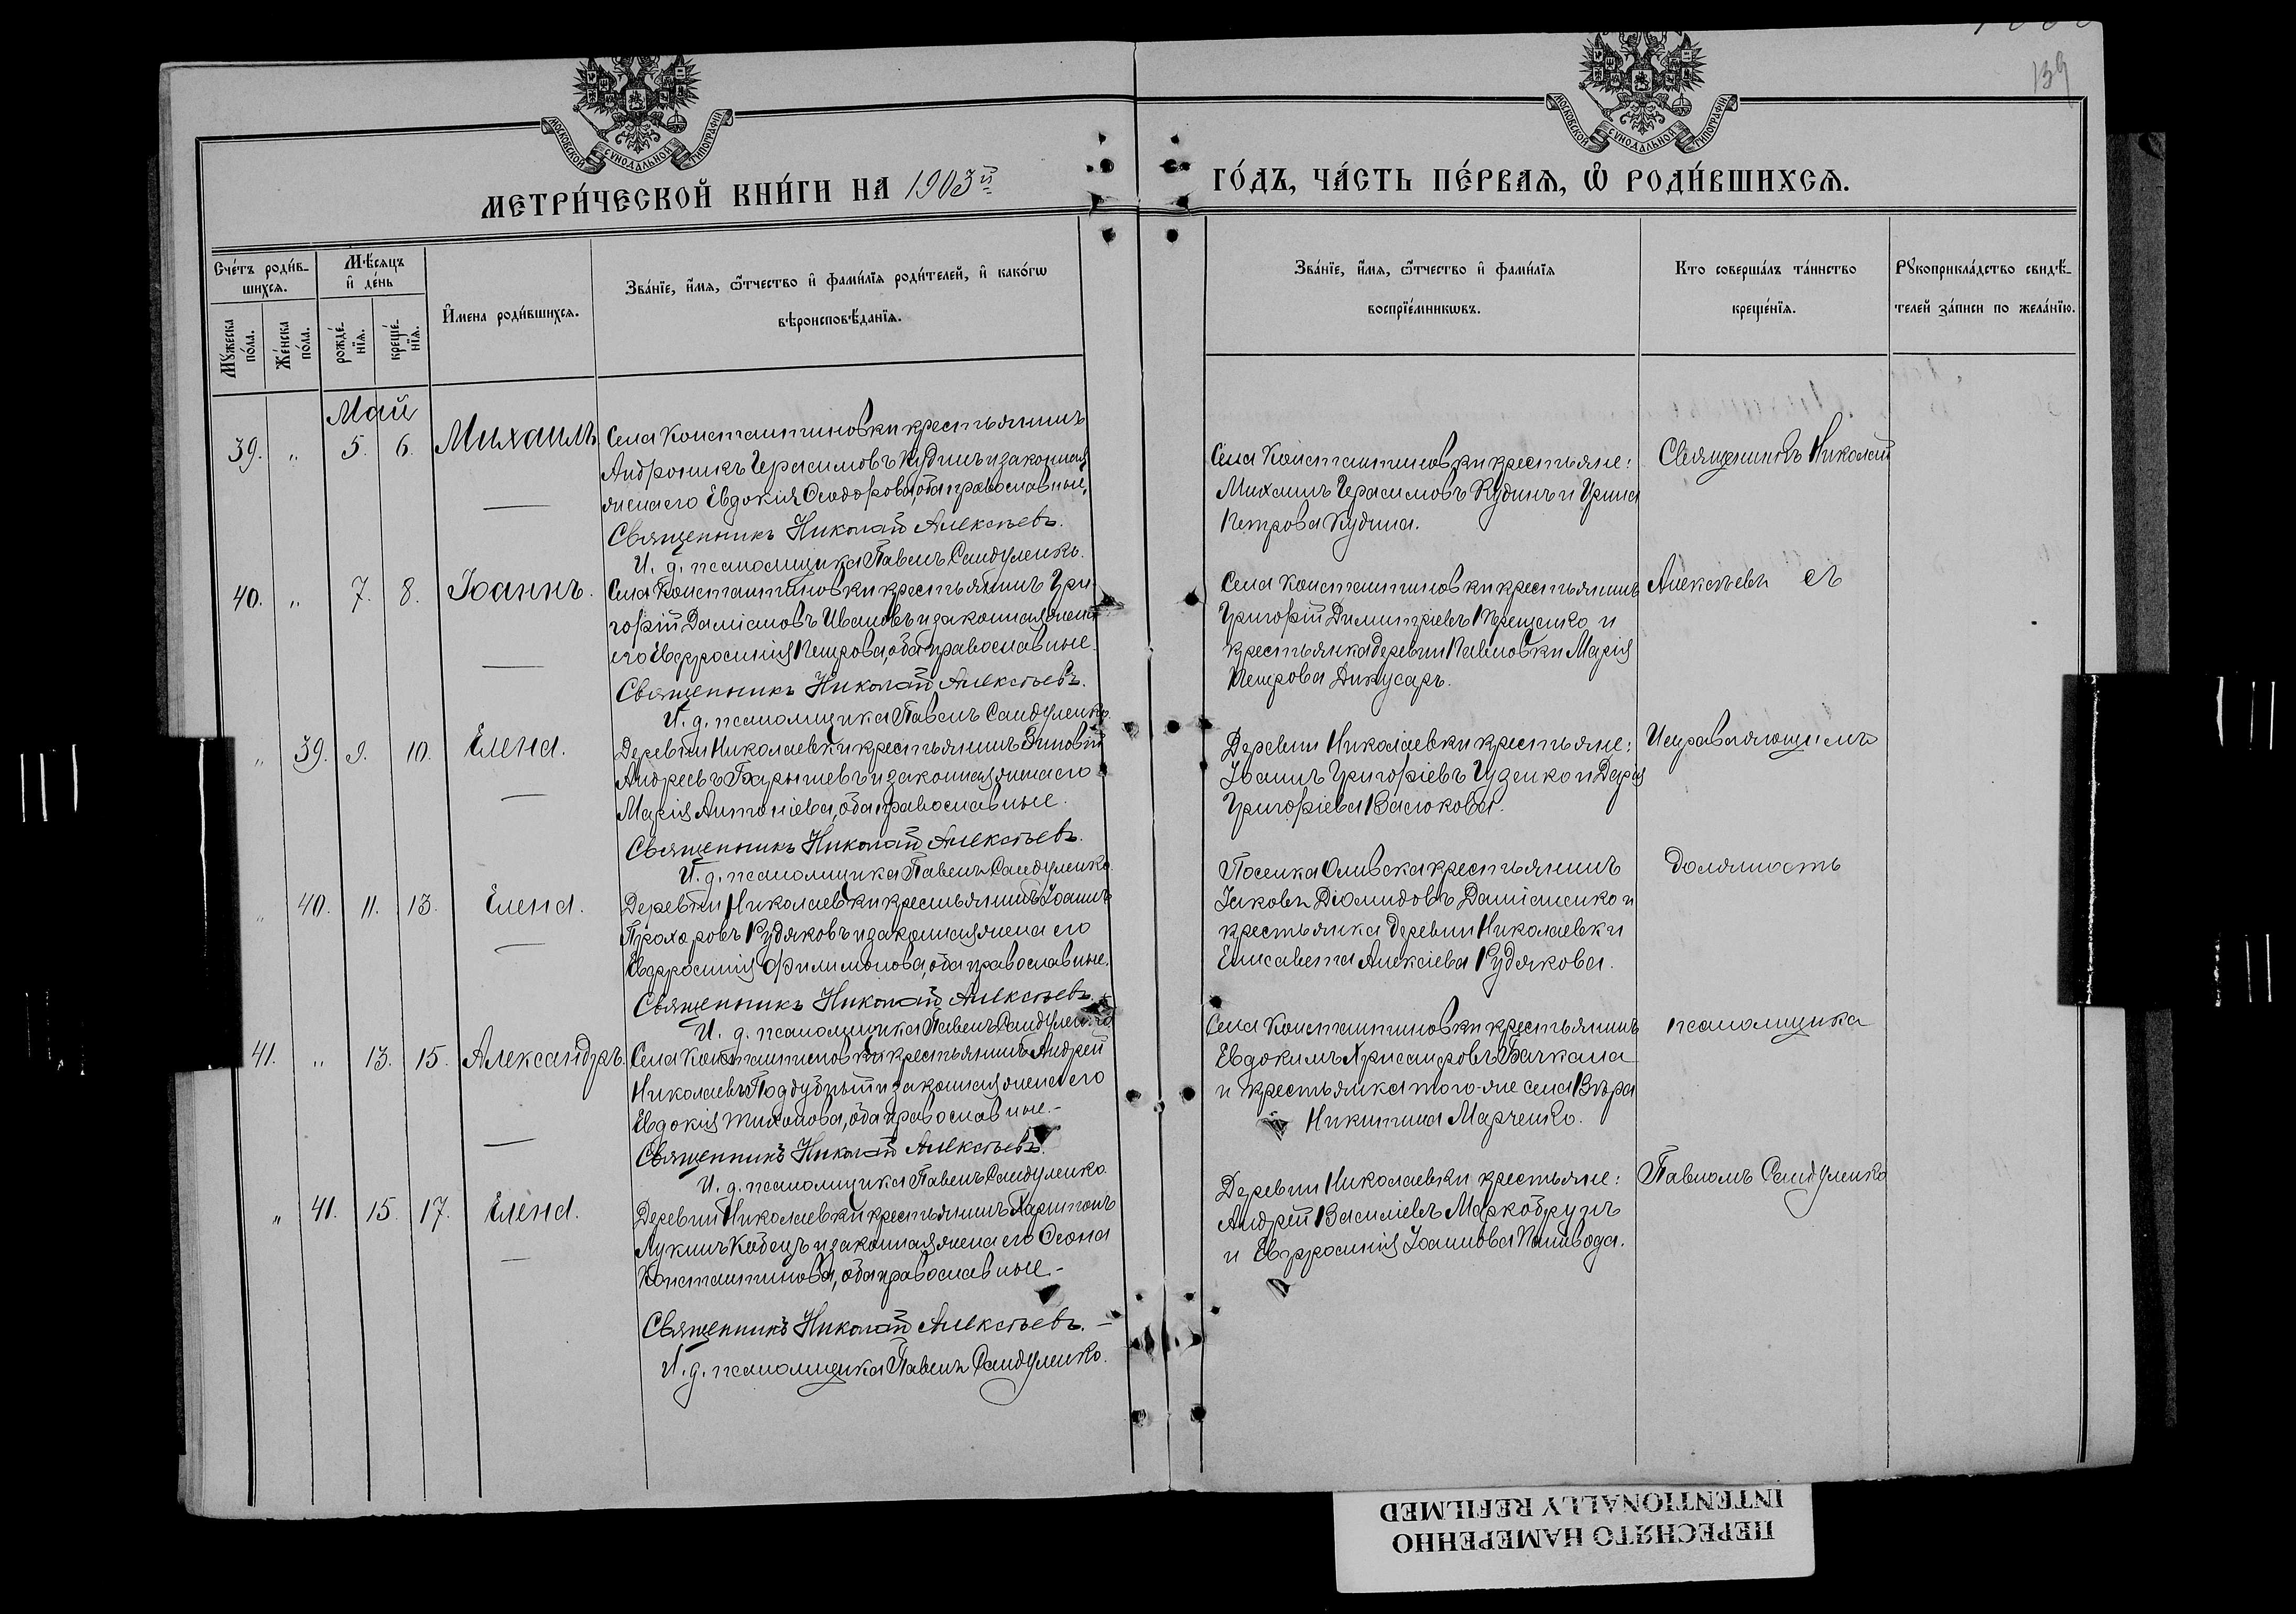 139
МОСКОВСКОЙ СѴНОДАЛЬНОЙ ТИПОГРАФІИ
МОСКОВСКОЙ СѴНОДАЛЬНОЙ ТИПОГРАФІИ
МЕТРИ́ЧЕСКОЙ КНИ́ГИ НА 1903й
ГО́ДЪ, ЧА́СТЬ ПЕ́РВАѦ, Ѡ҆ РОДИ́ВШИХСѦ.
Сче́тъ роди́в-
шихсѧ.
Мꙋ́жеска по́ла.
Же́нска по́ла.
Мѣ́сѧцъ
и҆ де́нь
рожде́-
нїѧ.
креще́-
нїѧ.
И҆мена роди́вшихсѧ.
Зва́нїе, и҆́мѧ, ѻ҆́тчество и҆ фами́лїѧ роди́телей, и҆ како́гѡ
вѣроисповѣ́данїѧ.
Зва́нїе, и҆́мѧ, ѻ҆́тчество и҆ фами́лїѧ
воспрїе́мникѡвъ.
Кто соверша́лъ та́инство
креще́нїѧ.
Рꙋкоприкла́дство свидѣ́-
телей за́писи по жела́нїю.
Май
39. „ 5. 6. Михаилъ
Села Константиновки крестьянинъ
Андроникъ Герасимовъ Кудинъ и законная
жена его Евдокія Ѳеодорова, оба православные.
Священникъ Николай Алексѣевъ.
И. д. псаломщика Павелъ Сандуленко.
Села Константиновки крестьяне:
Михаилъ Герасимовъ Кудинъ и Ирина
Петрова Кудина.
Священникъ Николай
40. „ 7. 8. Іоаннъ.
Села Константиновки крестьянинъ Гри-
горій Даміановъ Ивановъ и законная жена
его Евфросинія Петрова, оба православные.
Священникъ Николай Алексѣевъ.
И. д. псаломщика Павелъ Сандуленко.
Села Константиновки крестьянинъ
Григорій Димитріевъ и
крестьянка деревни Павловки Марія
Петрова Дикусаръ.
Алексѣевъ съ
„ 39. 9. 10. Елена.
Деревни Николаевки крестьянинъ Зиновій
Андреевъ Барышевъ и законная жена его
Марія Антоніева, оба православные.
Священникъ Николай Алексѣевъ.
И. д. псаломщика Павелъ Сандуленко.
Деревни Николаевки крестьяне:
Іоаннъ Григоріевъ Гуденко и Дарія
Григоріева Васюкова.
Исправляющимъ
„ 40. 11. 13. Елена.
Деревни Николаевки крестьянинъ Іоаннъ
Прохоровъ Рудяковъ и законная жена его
Евфросинія Филимонова, оба православные.
Священникъ Николай Алексѣевъ.
И. д. псаломщика Павелъ Сандуленко
Поселка крестьянинъ
Іаковъ Діомидовъ Даміаненко и
крестьянка деревни Николаевки
Елисавета Алексіева Рудякова.
должность
41. „ 13. 15. Александръ.
Села Константиновки крестьянинъ Андрей
Николаевъ Поддубный и законная жена его
Евдокія Тихонова, оба православные.-
Священникъ Николай Алексѣевъ.
И. д. псаломщика Павелъ Сандуленко
Села Константиновки крестьянинъ
Евдокимъ Хрисанфовъ Бачкана
и крестьянка того-же села Вѣра
Никитина Марченко.
псаломщика
„ 41. 15. 17. Елена.
Деревни Николаевки крестьянинъ Харитонъ
Лукинъ Кобецъ и законная жена его Ѳеона
Константинова, оба православные.-
Священникъ Николай Алексѣевъ. –
И. д. псаломщика Павелъ Сандуленко.
Деревни Николаевки крестьяне:
Андрей Василіевъ Маркобрунъ
и Евфросинія Іоаннова Паливода.
Павломъ Сандуленко
ПЕРЕСНЯТО НАМЕРЕННО
INTENTIONALLY REFILMED